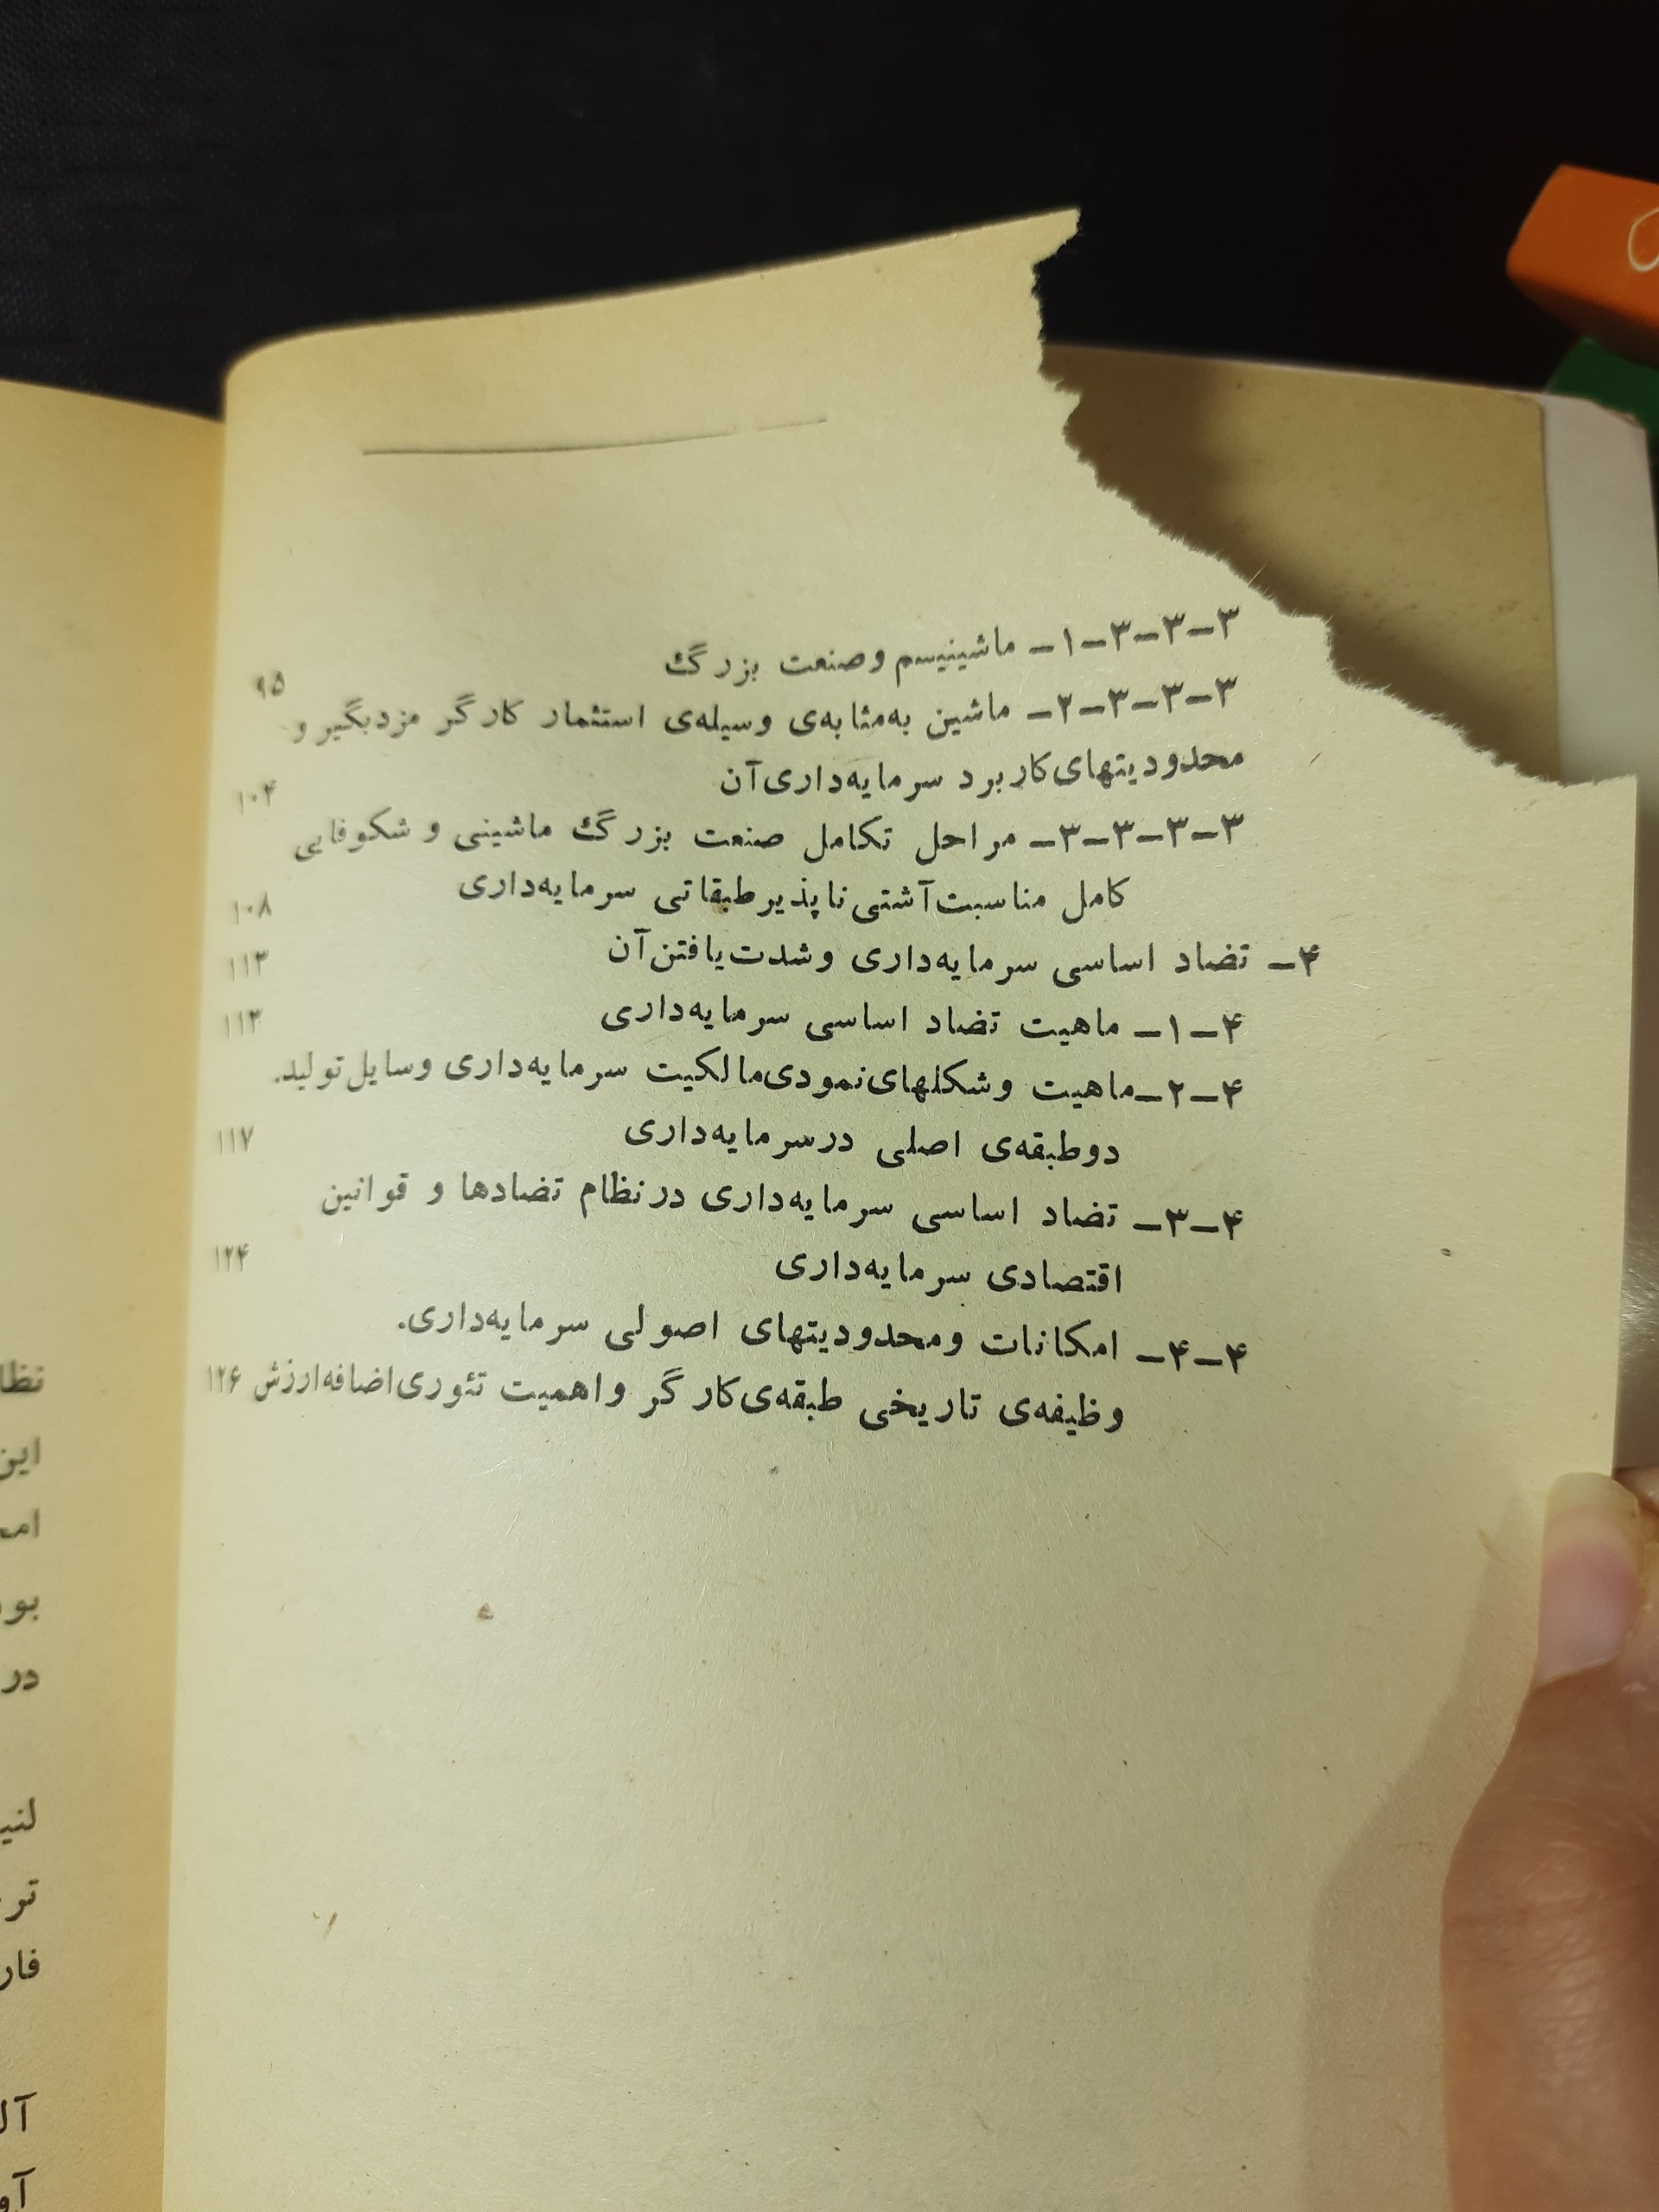 ۳-۳-۳-۱- ماشینیسم و صنعت بزرگ ۹۵
۳-۳-۳-۲- ماشین به‌مثابه‌ی وسیله‌ی استثمار کارگر مزدبگیر و
محدودیتهای کاربرد سرمایه‌داری آن ۱۰۴
۳-۳-۳-۳- مراحل تکامل صنعت بزرگ ماشینی و شکوفایی
کامل مناسبت آشتی ناپذیر طبقاتی سرمایه‌داری ۱۰۸
۴- تضاد اساسی سرمایه‌داری و شدت یافتن آن ۱۱۳
۴-۱- ماهیت تضاد اساسی سرمایه‌داری ۱۱۳
۴-۲- ماهیت و شکلهای نمودی مالکیت سرمایه‌داری وسایل تولید.
دو طبقه‌ی اصلی در سرمایه‌داری ۱۱۷
۴-۳- تضاد اساسی سرمایه‌داری در نظام تضادها و قوانین
اقتصادی سرمایه‌داری ۱۲۴
۴-۴- امکانات و محدودیتهای اصولی سرمایه‌داری.
وظیفه‌ی تاریخی طبقه‌ی کارگر و اهمیت تئوری اضافه ارزش ۱۲۶